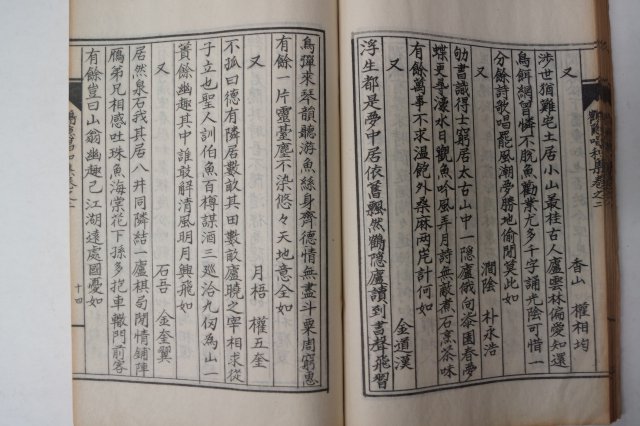 又 香山 權相均
涉世猶難宅土居小山最桂古人廬雲林偏愛知還
鳥餌網習憐不脫魚勸業尤多千字誦光陰可惜一
分餘詩歌唱罷風潮夢勝地偷閒莫比如
又 澗陰 朴永浩
劬書識得士窮居太古山中一隱廬俄向漆園春夢
蝶更尋濠水日觀魚吟風弄月詩無敵煮石烹茶味
有餘萬事不求溫飽外桑麻兩岸計何如
又 金道漢
浮生都是夢中居依舊飄然鶴隱廬讀到書聲飛習
鳥彈來琴韻聽游魚絲身齊德情無盡斗粟周窮惠
有餘一片靈臺塵不染悠々天地意全如
又 月梧 權五奎
不孤曰德有隣居數畝其田數畝廬曉之宰相求從
子立也聖人訓伯魚百樽謀酒三巡洽九仞爲山一
簣餘幽趣其中誰敢解清風明月興飛如
又 石吾 金奎翼
居然泉石我其居八井同隣結一廬棋局閒情鋪陣
鴈弟兄相感吐珠魚海棠花下孫多抱車轍門前客
有餘豈曰山翁幽趣已江湖遠處國憂如
十四